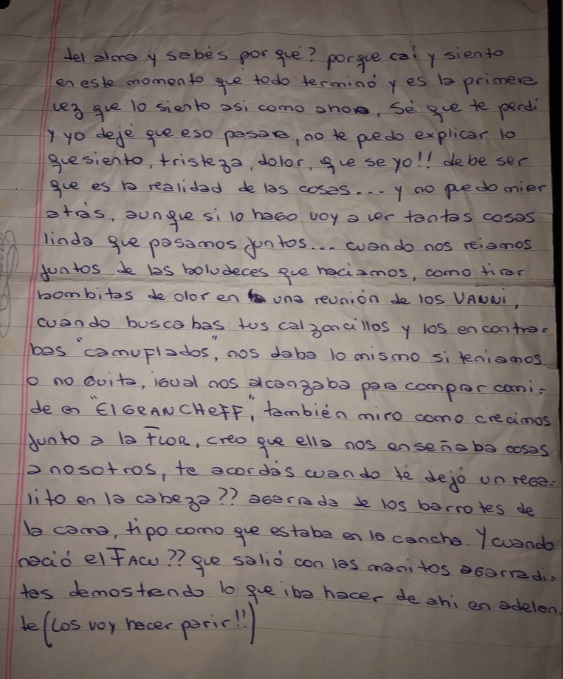 del alma y sabés por qué? porque caí y siento
en este momento que todo terminó y es la primera
vez que lo siento asi como ahora, sé que te perdi
y yo dejé que eso pasara, no te puedo explicar lo
que siento, tristeza, dolor, que se yo!! debe ser
que es la realidad de las cosas... y no puedo mirar
atrás, aunque si lo hago voy a ver tantas cosas
linda que pasamos juntos... cuando nos reiamos
juntos de las boludeces que haciamos, como tirar
bombitas de olor en una reunión de los VANNI,
cuando buscabas tus calzoncillos y los encontra-
bas "camuflados", nos daba lo mismo si teniamos
o no guita, igual nos alcanzaba para comprar comi-
da en "El GRAN CHEFF", también miro como crecimos
junto a la FLOR, creo que ella nos enseñaba cosas
a nosotros, te acordás cuando te dejó un rega-
lito en la cabeza?? agarrada de los barrotes de
la cama, tipo como que estaba en la cancha. Y cuando
nació el FACU?? que salió con las manitos agarradi-
tas demostrando lo que iba hacer de ahi en adelan
te (Los voy hacer parir!!)